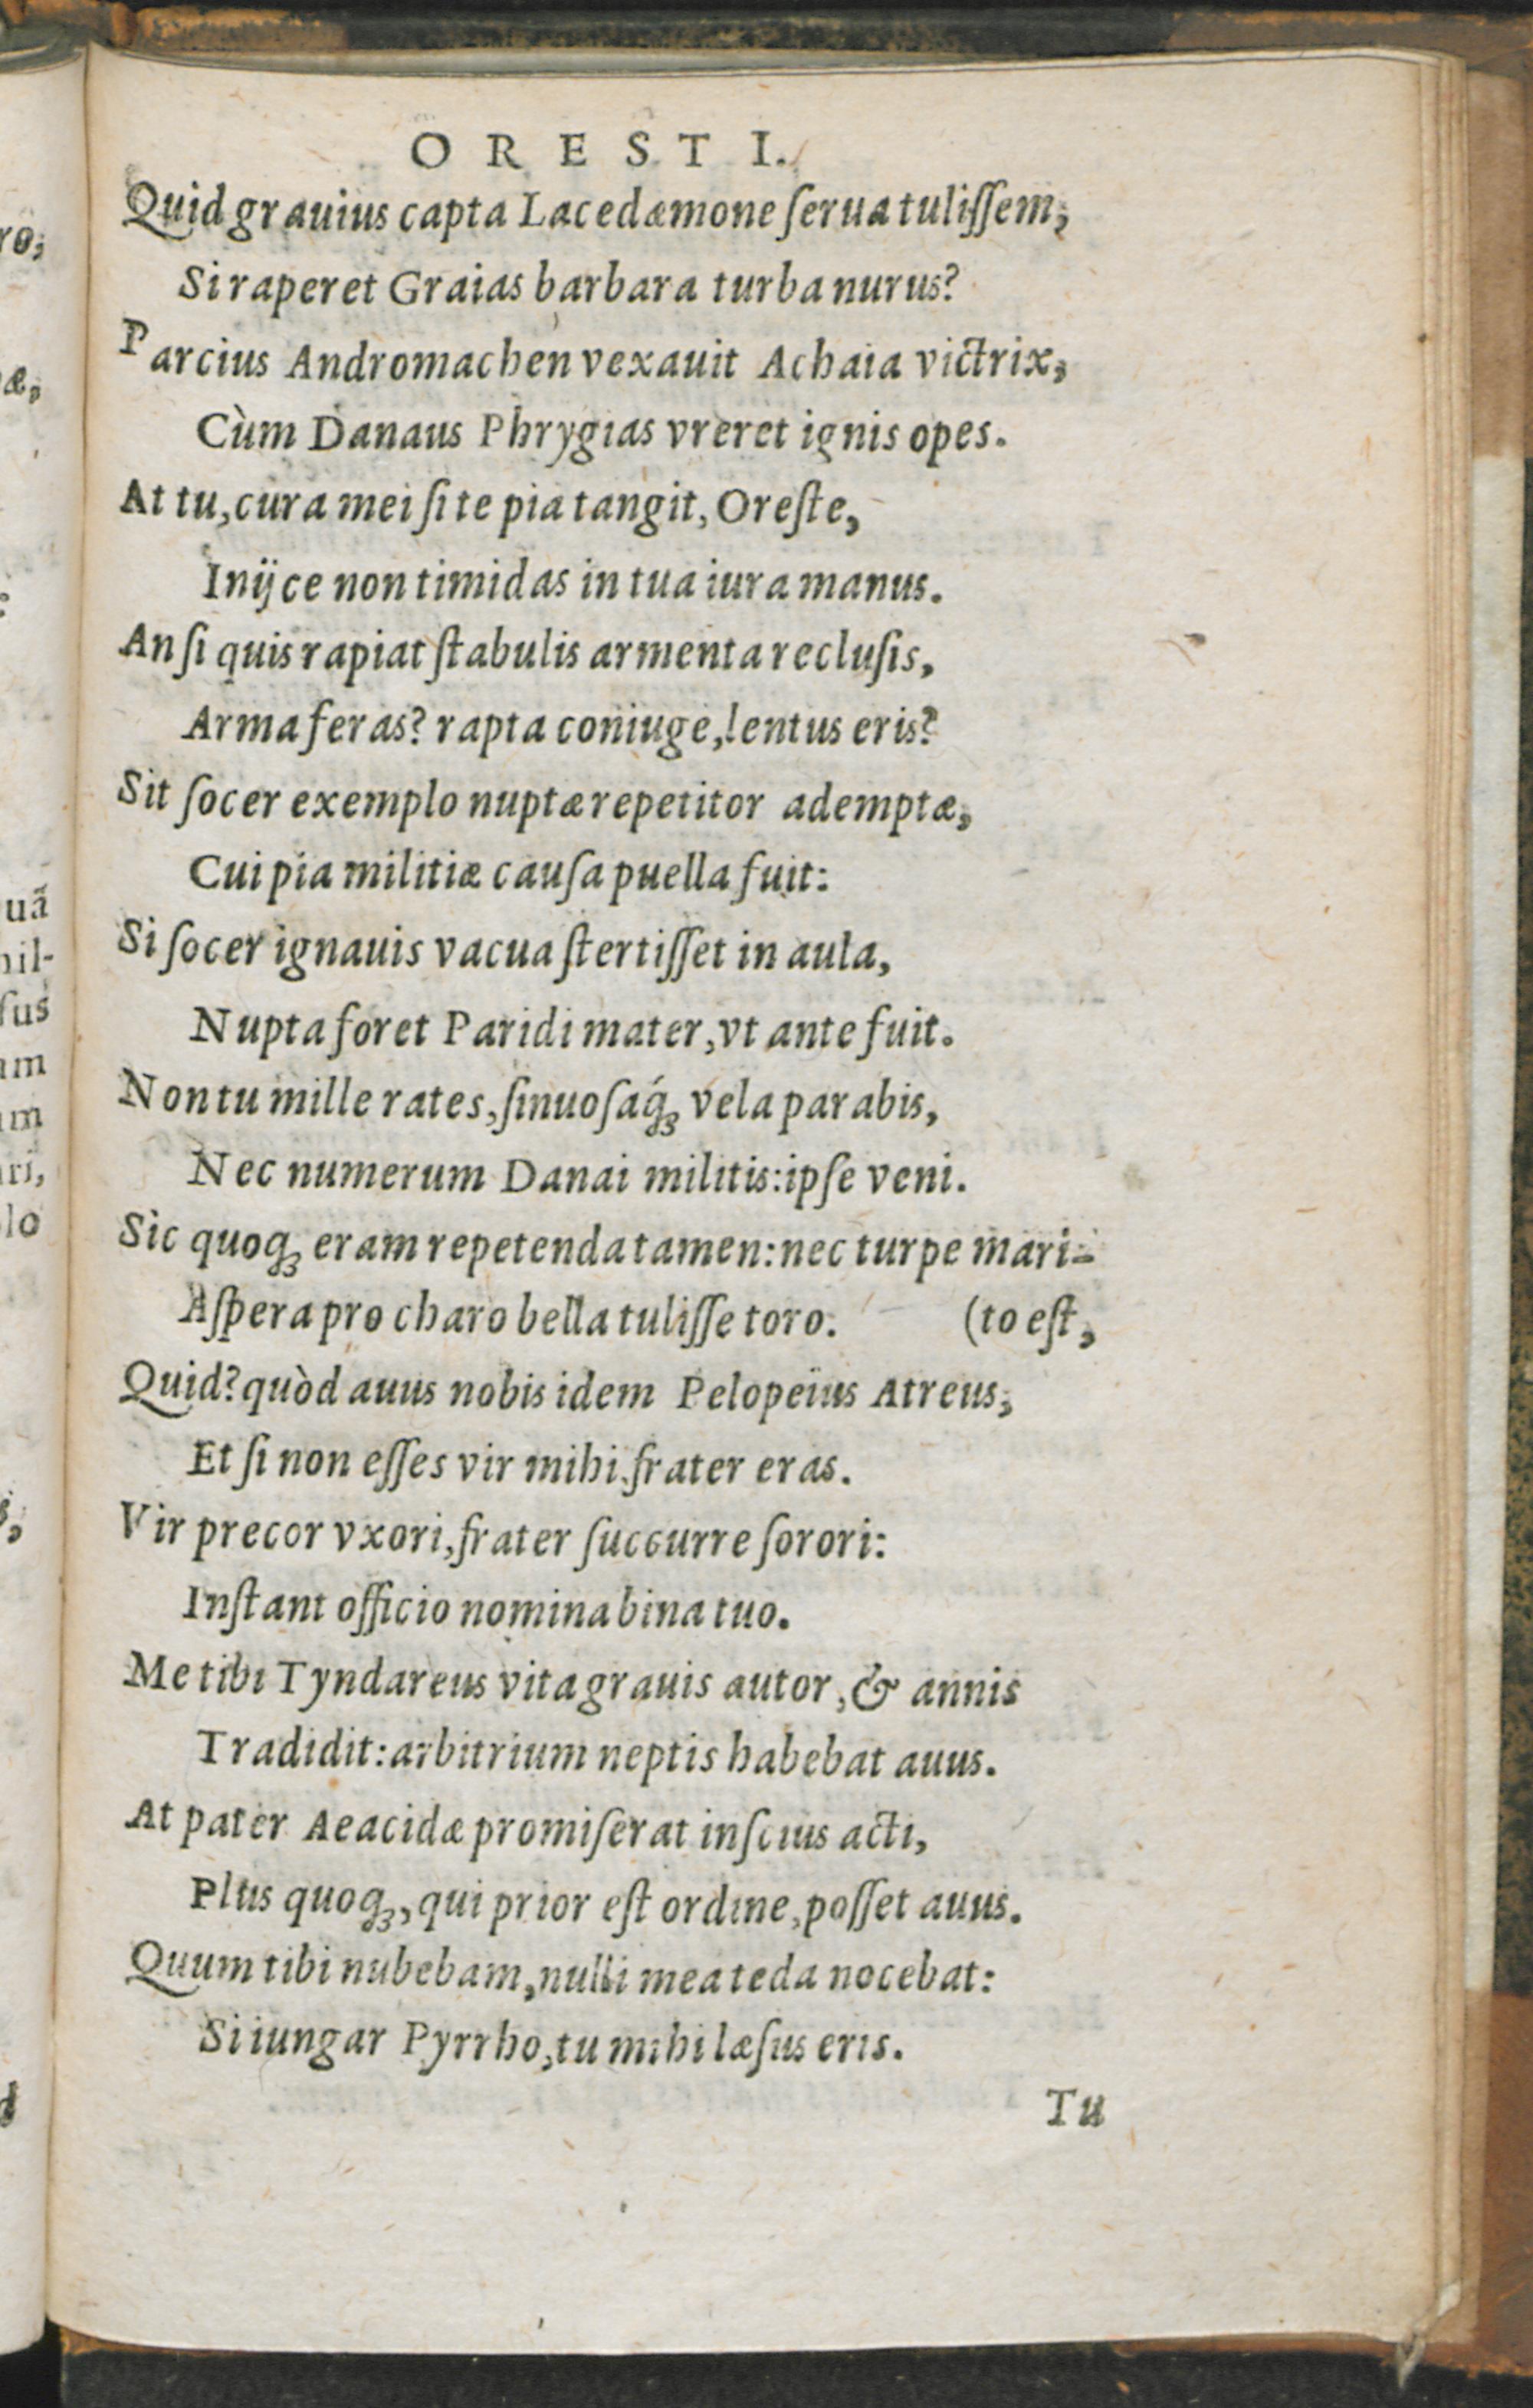 ORESTI.
Quid grauius capta Lacedæmone ſerua tuliſſem,
Si raperet Graias barbara turba nurus?
Parcius Andromachen vexauit Achaia victrix,
Cùm Danaus Phrygias vreret ignis opes.
At tu, cura mei ſi te pia tangit, Oreſte,
Inijce non timidas in tua iura manus.
An ſi quis rapiat ſtabulis armenta recluſis,
Arma feras? rapta coniuge, lentus eris?
Sit ſocer exemplo nuptæ repetitor ademptæ,
Cui pia militiæ cauſa puella fuit:
Si ſocer ignauis vacua ſtertiſſet in aula,
Nupta foret Paridi mater, vt ante fuit.
Non tu mille rates, ſinuoſaq́ꝫ vela parabis,
Nec numerum Danai militis: ipſe veni.
Sic quoqꝫ eram repetenda tamen: nec turpe mari-
Aſpera pro charo bella tuliſſe toro. (to eſt,
Quid? quòd auus nobis idem Pelopeius Atreus,
Et ſi non eſſes vir mihi, frater eras.
Vir precor vxori, frater ſuccurre ſorori:
Inſtant officio nomina bina tuo.
Me tibi Tyndareus vita grauis autor, & annis
Tradidit: arbitrium neptis habebat auus.
At pater Aeacidæ promiſerat inſcius acti,
Plus quoqꝫ, qui prior eſt ordine, poſſet auus.
Quum tibi nubebam, nulli mea teda nocebat:
Si iungar Pyrrho, tu mihi læſus eris.
Tu
ro,
æ,
uã
hil-
ſus
am
um
ri,
lo
s,